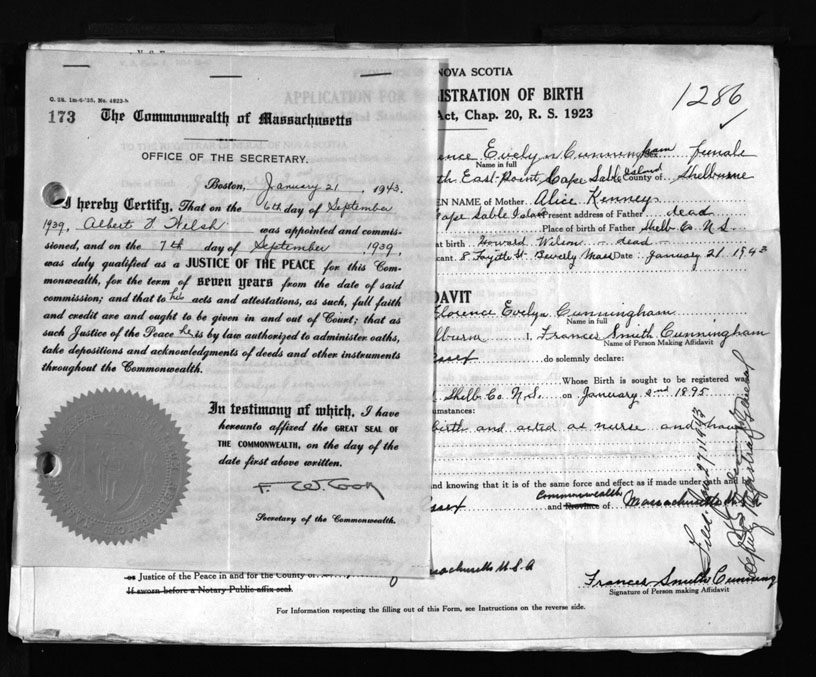 G. 28. 1m-6-'35, No. 4823-h
173 The Commonwealth of Massachusetts
OFFICE OF THE SECRETARY.
Boston, January 21 1943.
I hereby Certify, That on the 6th day of September
1939, Albert F. Welsh was appointed and commis-
sioned, and on the 7th day of September, 1939,
was duly qualified as a JUSTICE OF THE PEACE for this Com-
monwealth, for the term of seven years from the date of said
commission; and that to his acts and attestations, as such, full faith
and credit are and ought to be given in and out of Court; that as
such Justice of the Peace he is by law authorized to administer oaths,
take depositions and acknowledgments of deeds and other instruments
throughout the Commonwealth.
In testimony of which, I have
hereunto affixed the GREAT SEAL OF
THE COMMONWEALTH, on the day of the
date first above written.
F. W. Cook
Secretary of the Commonwealth.
NOVA SCOTIA
1286
ISTRATION OF BIRTH
Act, Chap. 20, R. S. 1923
ence Evelyn Cunningham Sex female
Name in full
th East Point, Cape Sable Island County of Shelburne
EN NAME of Mother Alice Kenney
Cape Sable Island Present address of Father dead
Place of birth of Father Shelb Co. N.S.
at birth Howard Wilson - dead
cant 8 Fayette St. Beverly Mass Date January 21 1943
DAVIT
Florence Evelyn Cunningham
Name in full
lburn I, Frances Smith Cunningham
Name of Person Making Affidavit
Essex do solemnly declare:
Whose Birth is sought to be registered was
Shelb Co. N.S. on January 2nd 1895
umstances:
birth and acted as nurse and have
and knowing that it is of the same force and effect as if made under oath and
Commonwealth
Essex and Province of Massachusetts
ssachusetts U.S.A
or Justice of the Peace in and for the County of
If sworn before a Notary Public affix seal.
Frances Smith Cunning
Signature of Person making Affidavit
For Information respecting the filling out of this Form, see Instructions on the reverse side.
Deputy Registrar General